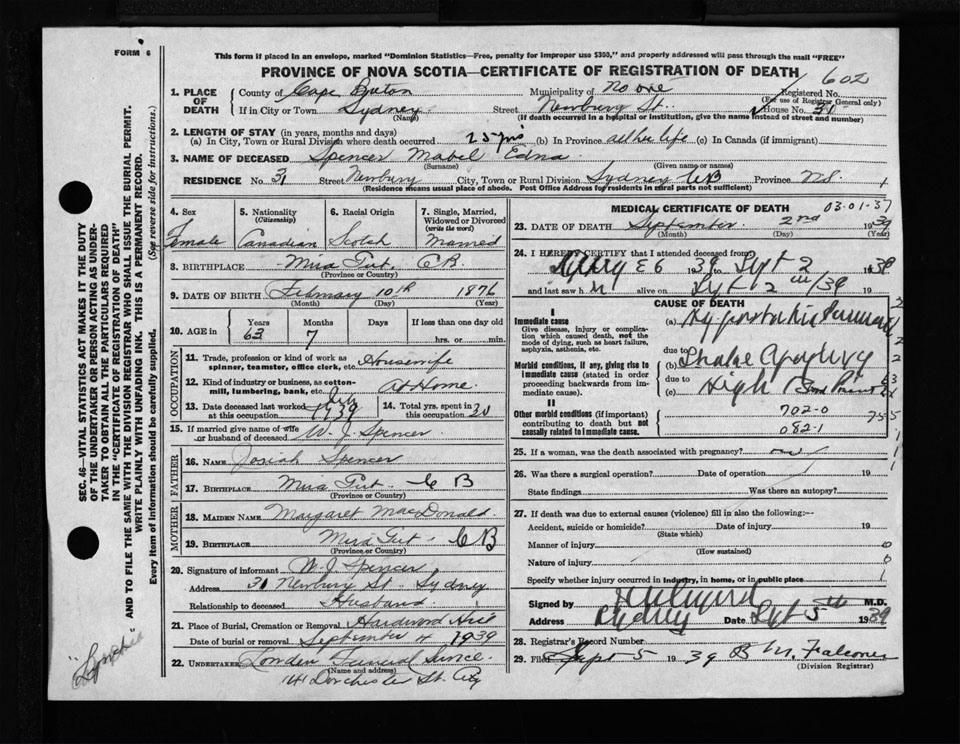 FORM 6
This form if placed in an envelope, marked "Dominion Statistics—Free, penalty for improper use $300," and properly addressed will pass through the mail "FREE"
PROVINCE OF NOVA SCOTIA—CERTIFICATE OF REGISTRATION OF DEATH
602
1. PLACE OF DEATH County of Cape Breton Municipality of No one Registered No.
(For use of Registrar General only)
If in City or Town Sydney (Name) Street Newbury St. House No. 31
(If death occurred in a hospital or institution, give the name instead of street and number)
2. LENGTH OF STAY (in years, months and days)
(a) In City, Town or Rural Division where death occurred 25 yrs (b) In Province all her life (c) In Canada (if immigrant)
3. NAME OF DECEASED Spencer Mabel Edna
(Surname) (Given name or names)
RESIDENCE No. 31 Street Newbury City, Town or Rural Division Sydney CB Province N.S. 1
(Residence means usual place of abode. Post Office Address for residents in rural parts not sufficient)
4. Sex Female
5. Nationality (Citizenship) Canadian
6. Racial Origin Scotch
7. Single, Married, Widowed or Divorced (write the word) Married
8. BIRTHPLACE Mira Gut. CB.
(Province or Country)
9. DATE OF BIRTH February 10th 1876
(Month) (Day) (Year)
10. AGE in Years 63 Months 7 Days If less than one day old hrs. or min.
OCCUPATION
11. Trade, profession or kind of work as spinner, teamster, office clerk, etc. Housewife
12. Kind of industry or business, as cotton-mill, lumbering, bank, etc. At Home.
13. Date deceased last worked at this occupation July 1939
14. Total yrs. spent in this occupation 20
15. If married give name of wife or husband of deceased W. J. Spencer
FATHER
16. NAME Josiah Spencer
17. BIRTHPLACE Mira Gut - C B
(Province or Country)
MOTHER
18. MAIDEN NAME Margaret MacDonald
19. BIRTHPLACE Mira Gut - CB
(Province or Country)
20. Signature of informant W. J. Spencer
Address 31 Newbury St. Sydney
Relationship to deceased Husband
21. Place of Burial, Cremation or Removal Hardwood Hill
Date of burial or removal September 4 1939
22. UNDERTAKER Funeral Service
(Name and address)
141 Dorchester St. City
MEDICAL CERTIFICATE OF DEATH 03-01-37
23. DATE OF DEATH September 2nd 1939
(Month) (Day) (Year)
24. I HEREBY CERTIFY that I attended deceased from:
1939 to Sept 2 1939
and last saw h alive on Sept 2 39 19
CAUSE OF DEATH
I
Immediate cause
Give disease, injury or complication which caused death, not the mode of dying, such as heart failure, asphyxia, asthenia, etc.
(a) Hypostatic
due to
Morbid conditions, if any, giving rise to immediate cause (stated in order proceeding backwards from immediate cause).
(b)
due to
(c) High
II
Other morbid conditions (if important) contributing to death but not causally related to immediate cause.
702-0
082-1
25. If a woman, was the death associated with pregnancy?
26. Was there a surgical operation? Date of operation 19
State findings Was there an autopsy?
27. If death was due to external causes (violence) fill in also the following:—
Accident, suicide or homicide? Date of injury 19
(State which)
Manner of injury 0
(How sustained)
Nature of injury 0
Specify whether injury occurred in industry, in home, or in public place 1
Signed by M.D.
Address Sydney Date Sept 5th 1939
28. Registrar's Record Number
29. Filed Sept 5 1939 B M. Falconer
(Division Registrar)
SEC. 46—VITAL STATISTICS ACT MAKES IT THE DUTY
OF THE UNDERTAKER OR PERSON ACTING AS UNDER-
TAKER TO OBTAIN ALL THE PARTICULARS REQUIRED
IN THE "CERTIFICATE OF REGISTRATION OF DEATH"
AND TO FILE THE SAME WITH THE DIVISION REGISTRAR WHO SHALL ISSUE THE BURIAL PERMIT.
WRITE PLAINLY WITH UNFADING INK. THIS IS A PERMANENT RECORD.
Every item of Information should be carefully supplied. (See reverse side for instructions.)